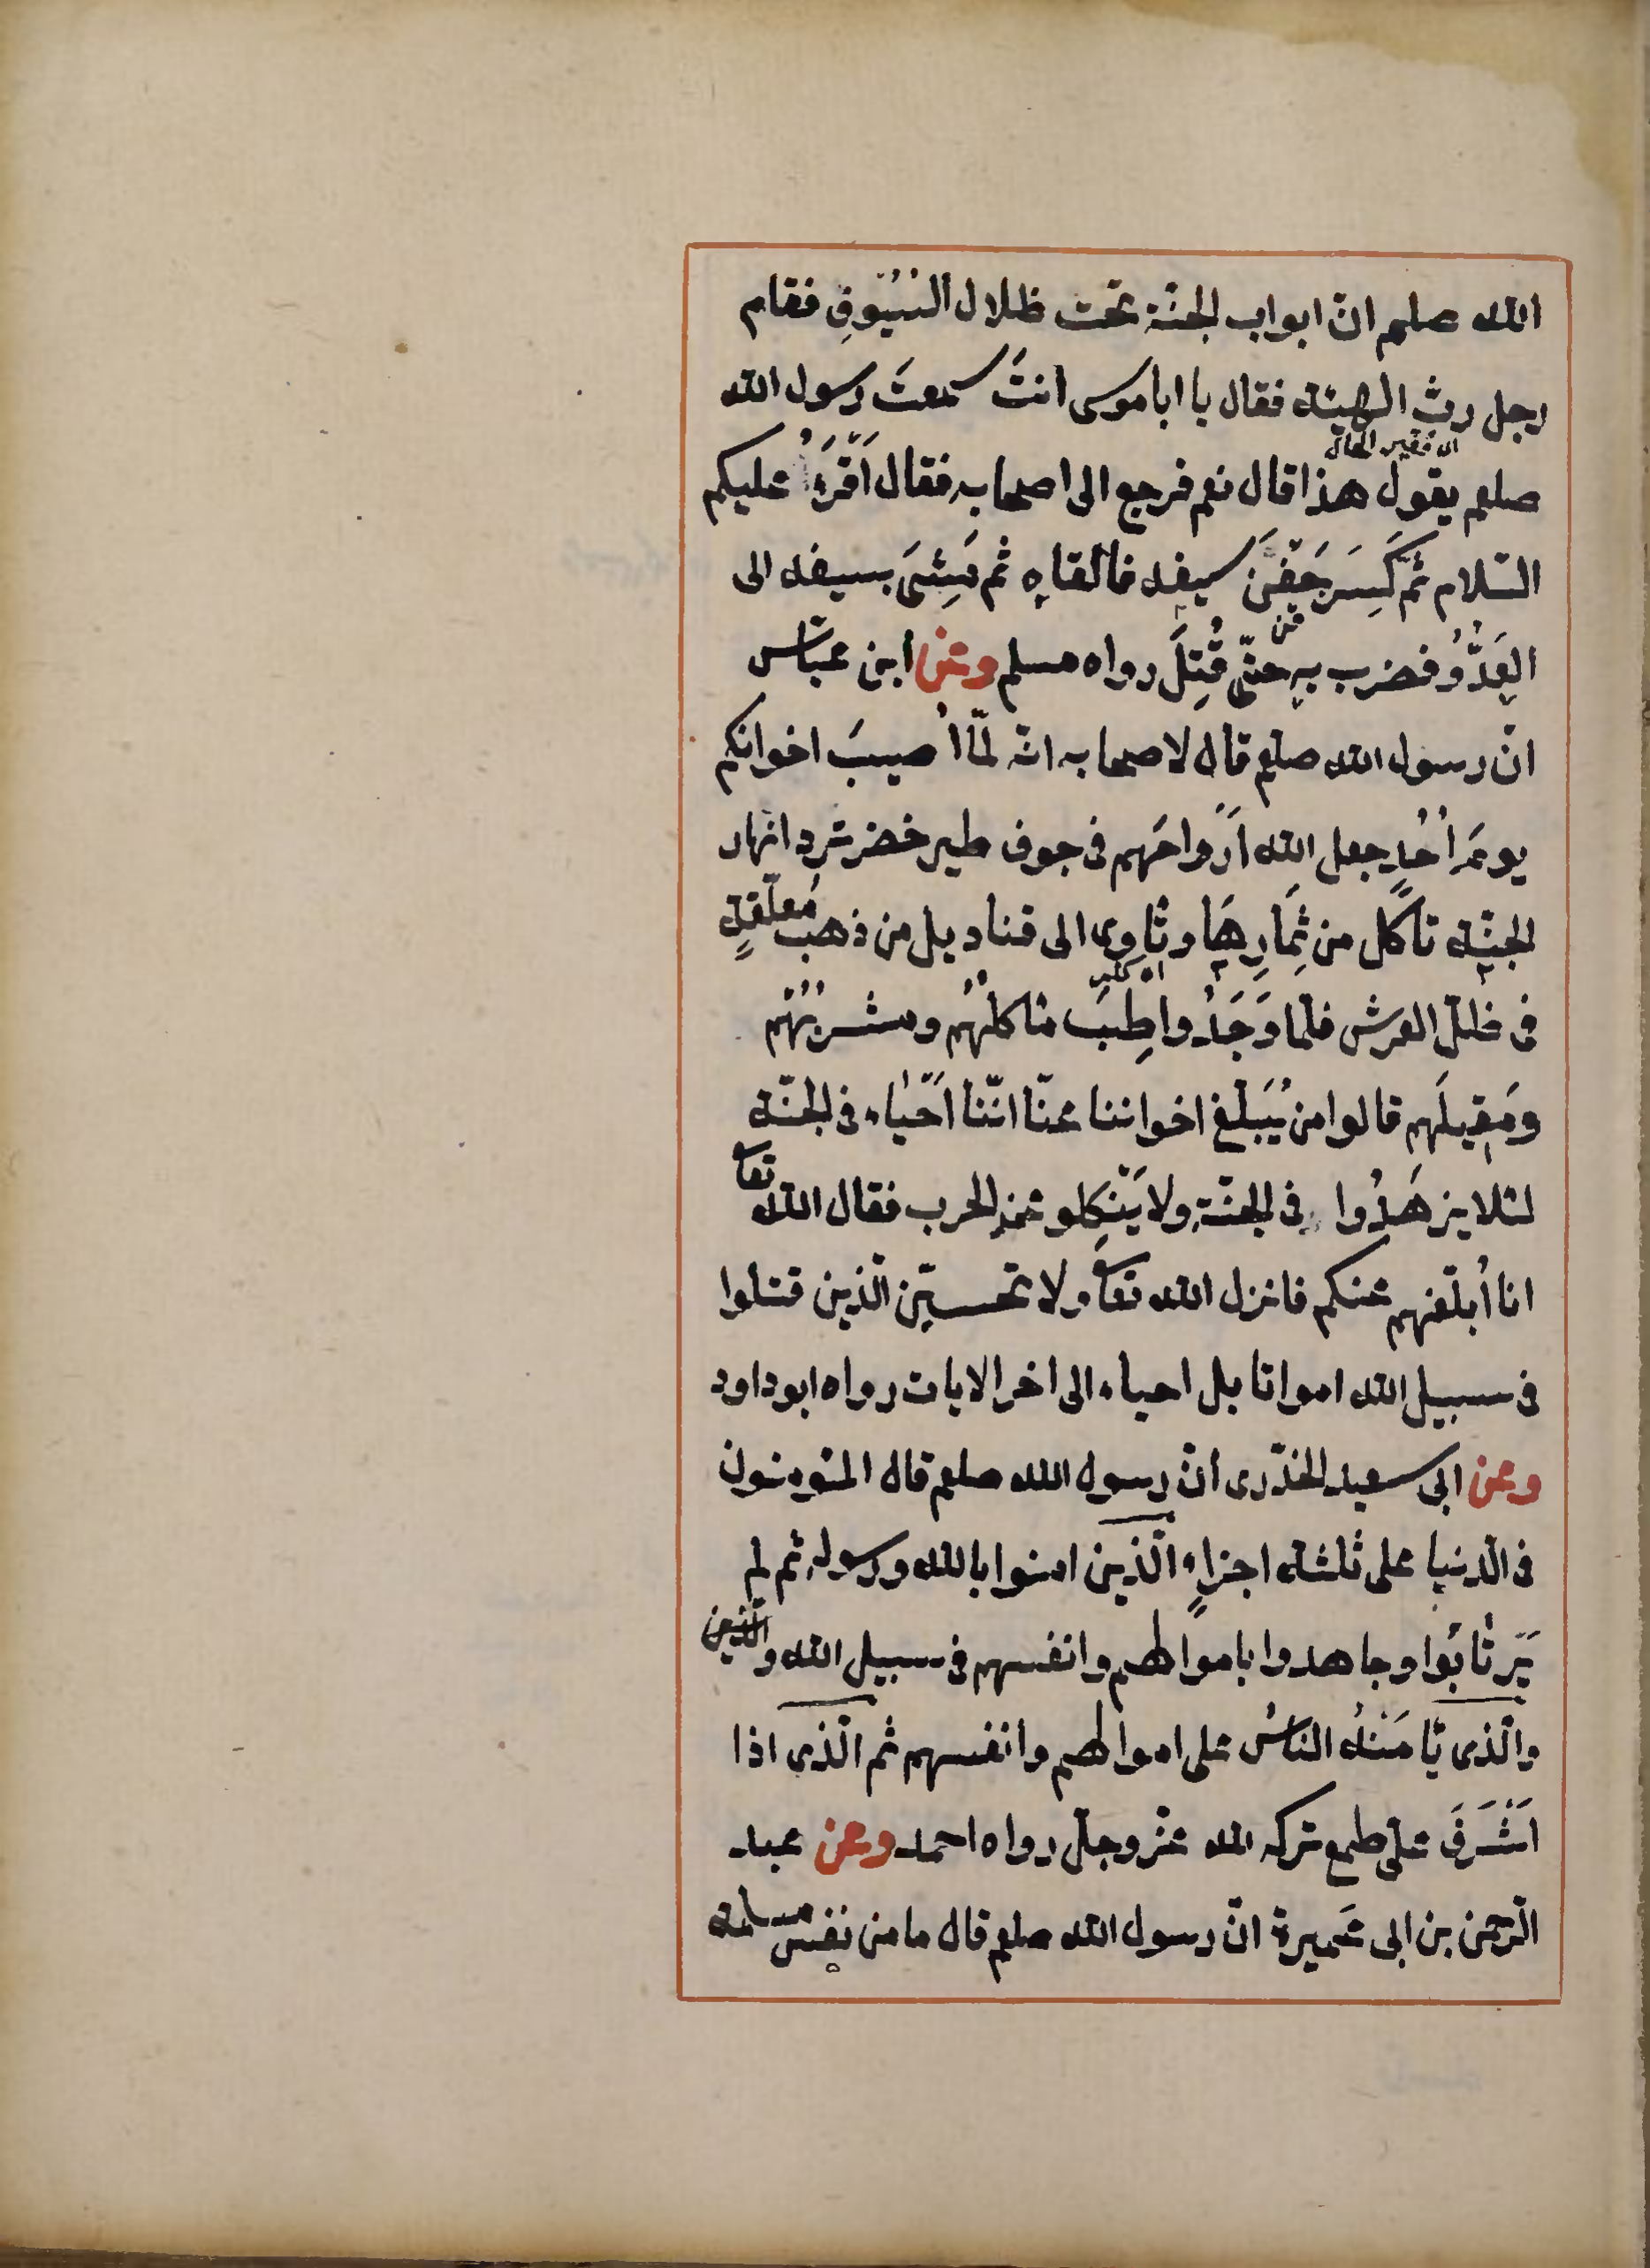 الله صلعم انّ ابواب الجنّة تحت ظلال السُّيُوفِ فقام
رجل رث الهيئة فقال يا ابا موسى أنتَ سمعتَ رسول الله
اى فقير الحال
صلعم يقول هذا قال نعم فرجع الى اصحابه فقال اَقْرَءُ عليكم
السّلام ثم كَسَرَ جَفْنَ سيفه فالقاه ثم مَشَى بسيفه الى
العَدُوِّ فضرب به حتّى قُتِلَ رواه مسلم وعن ابن عبّاس
انّ رسول الله صلعم قال لاصحابه انّه لمّا اُصيبَ اخوانكم
يومَ اُحُدٍ جعل الله اَرْواحَهم فى جوف طير خضر ترد انهار
الجنّة تاكل من ثِمَارِهَا وتَاوِى الى قناديل من ذهب مُعلّقةٍ
فى ظلّ العرش فلمّا وَجَدُوا طِيبَ مأكلهم ومشربهم
ومَقِيلَهم قالوا من يُبَلّغ اخواننا عنّا انّنا اَحْيَاء فى الجنّة
لئلا يزهَدُوا فى الجنّة ولا يَنْكِلو عند الحرب فقال الله تعا
انا أُبلّغهم عنكم فانزل الله تعا ولا تحسبنّ الّذين قتلوا
فى سبيل الله امواتا بل احياء الى اخر الايات رواه ابو داود
وعن ابى سعيد الخدْرى أنّ رسول الله صلعم قال المؤمنون
فى الدّنيا على ثلثة اجزاءٍ الّذين امنوا بالله ورسوله ثم لم
يَرْتابوا وجاهدوا باموالهم وانفسهم فى سبيل الله والّذين
والّذى يَأمَنُهُ الناسُ على اموالهم وانفسهم ثم الّذى اذا
اَشْرَفَ على طمع تركه لله عزّ وجلّ رواه احمد وعن عبد
الرّحمن بن ابى عَميرة انّ رسول الله صلعم قال ما من نفس مسلمة